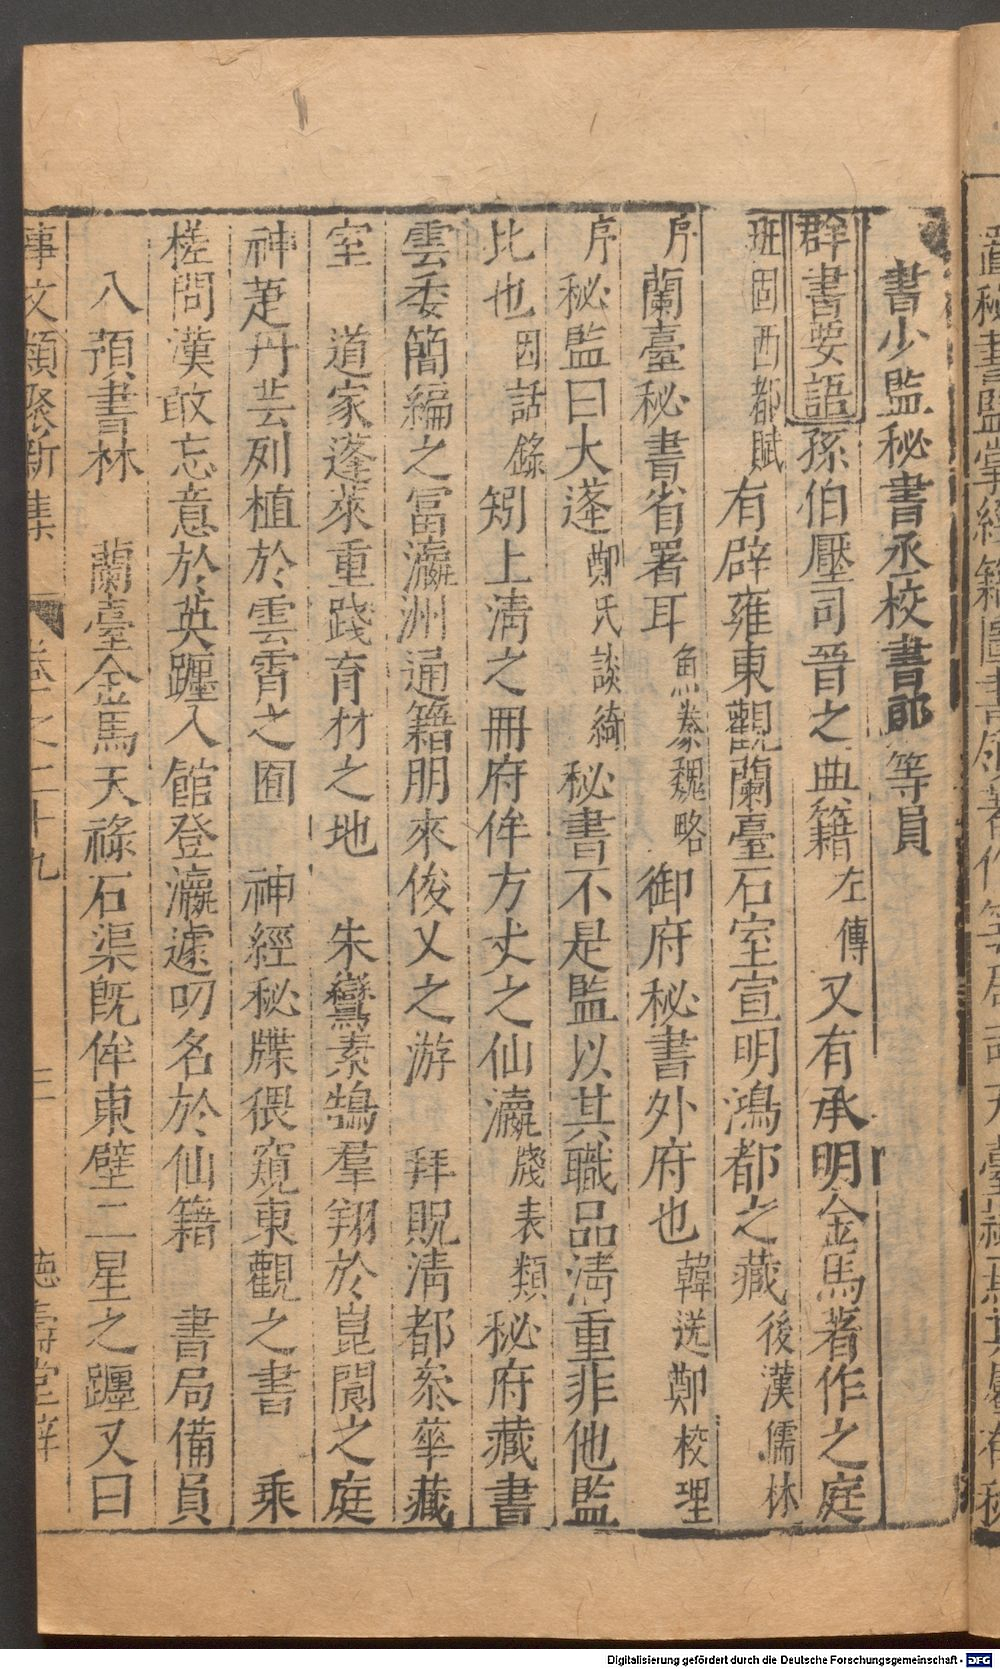 書少監秘書丞校書郎等員
群書要語孫伯黶司晉之典籍左傳又有承明金馬著作之庭
班固西都賦有辟雍東觀蘭臺石室宣明鴻都之藏後漢儒林
序蘭臺秘書省署耳魚豢魏略御府秘書外府也韓送鄭校理
序秘監曰大蓬鄭氏談綺秘書不是監以其職品淸重非他監
比也因話錄矧上淸之冊府侔方丈之仙瀛牋表類秘府藏書
雲委簡編之富瀛洲通籍朋來俊乂之游拜貺淸都泰華藏
室道家蓬萊重踐育材之地朱鸞素鵠羣翔於崑閬之庭
神芝丹芸列植於雲霄之囿神經秘牒猥窺東觀之書乘
槎問漢敢忘意於英躔入館登瀛遽叨名於仙籍書局備員
八預書林蘭臺金馬天祿石渠旣侔東壁二星之躔又曰
事文類聚新集 卷之二十九 三 德壽堂梓
Digitalisierung gefördert durch die Deutsche Forschungsgemeinschaft - DFG